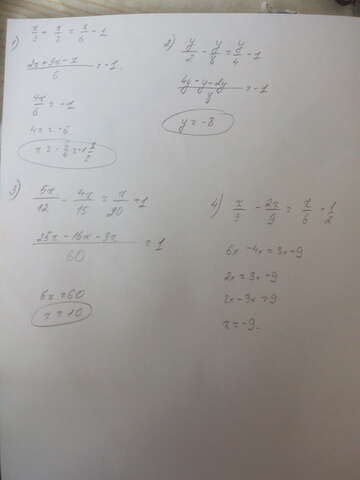 1)
x/3 + x/2 = x/6 - 1
2x+3x-1/6 = -1
4x/6 = -1
4x = -6
2)
y/2 - y/8 = y/4 - 1
4y-y-2y/8 = -1
y = -8
3)
5x/12 - 4x/15 = x/20 = 1
25x-16x-3x/60 = 1
6x = 60
x = 10
4)
x/3 - 2x/9 = x/6 - 1/2
6x-4x = 3x-9
2x = 3x-9
2x-3x = 9
x = -9